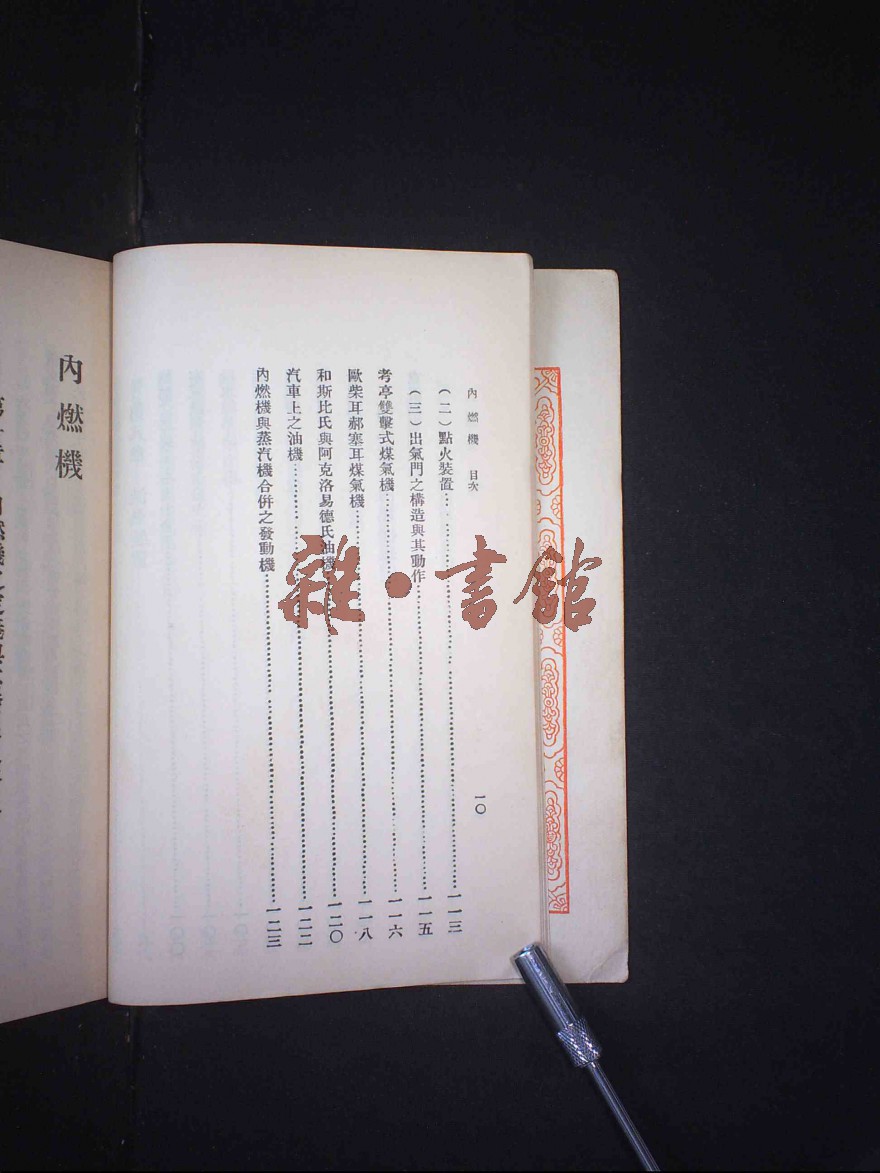 內燃機 目次
(二)點火裝置……一一三
(三)出氣門之構造與其動作……一一五
考亭雙擊式煤氣機……一一六
歐柴耳郝塞耳煤氣機……一一八
和斯比氏與阿克洛易德氏油機……一二〇
汽車上之油機……一二二
內燃機與蒸汽機合併之發動機……一二三
一〇
內燃機
雜·書館